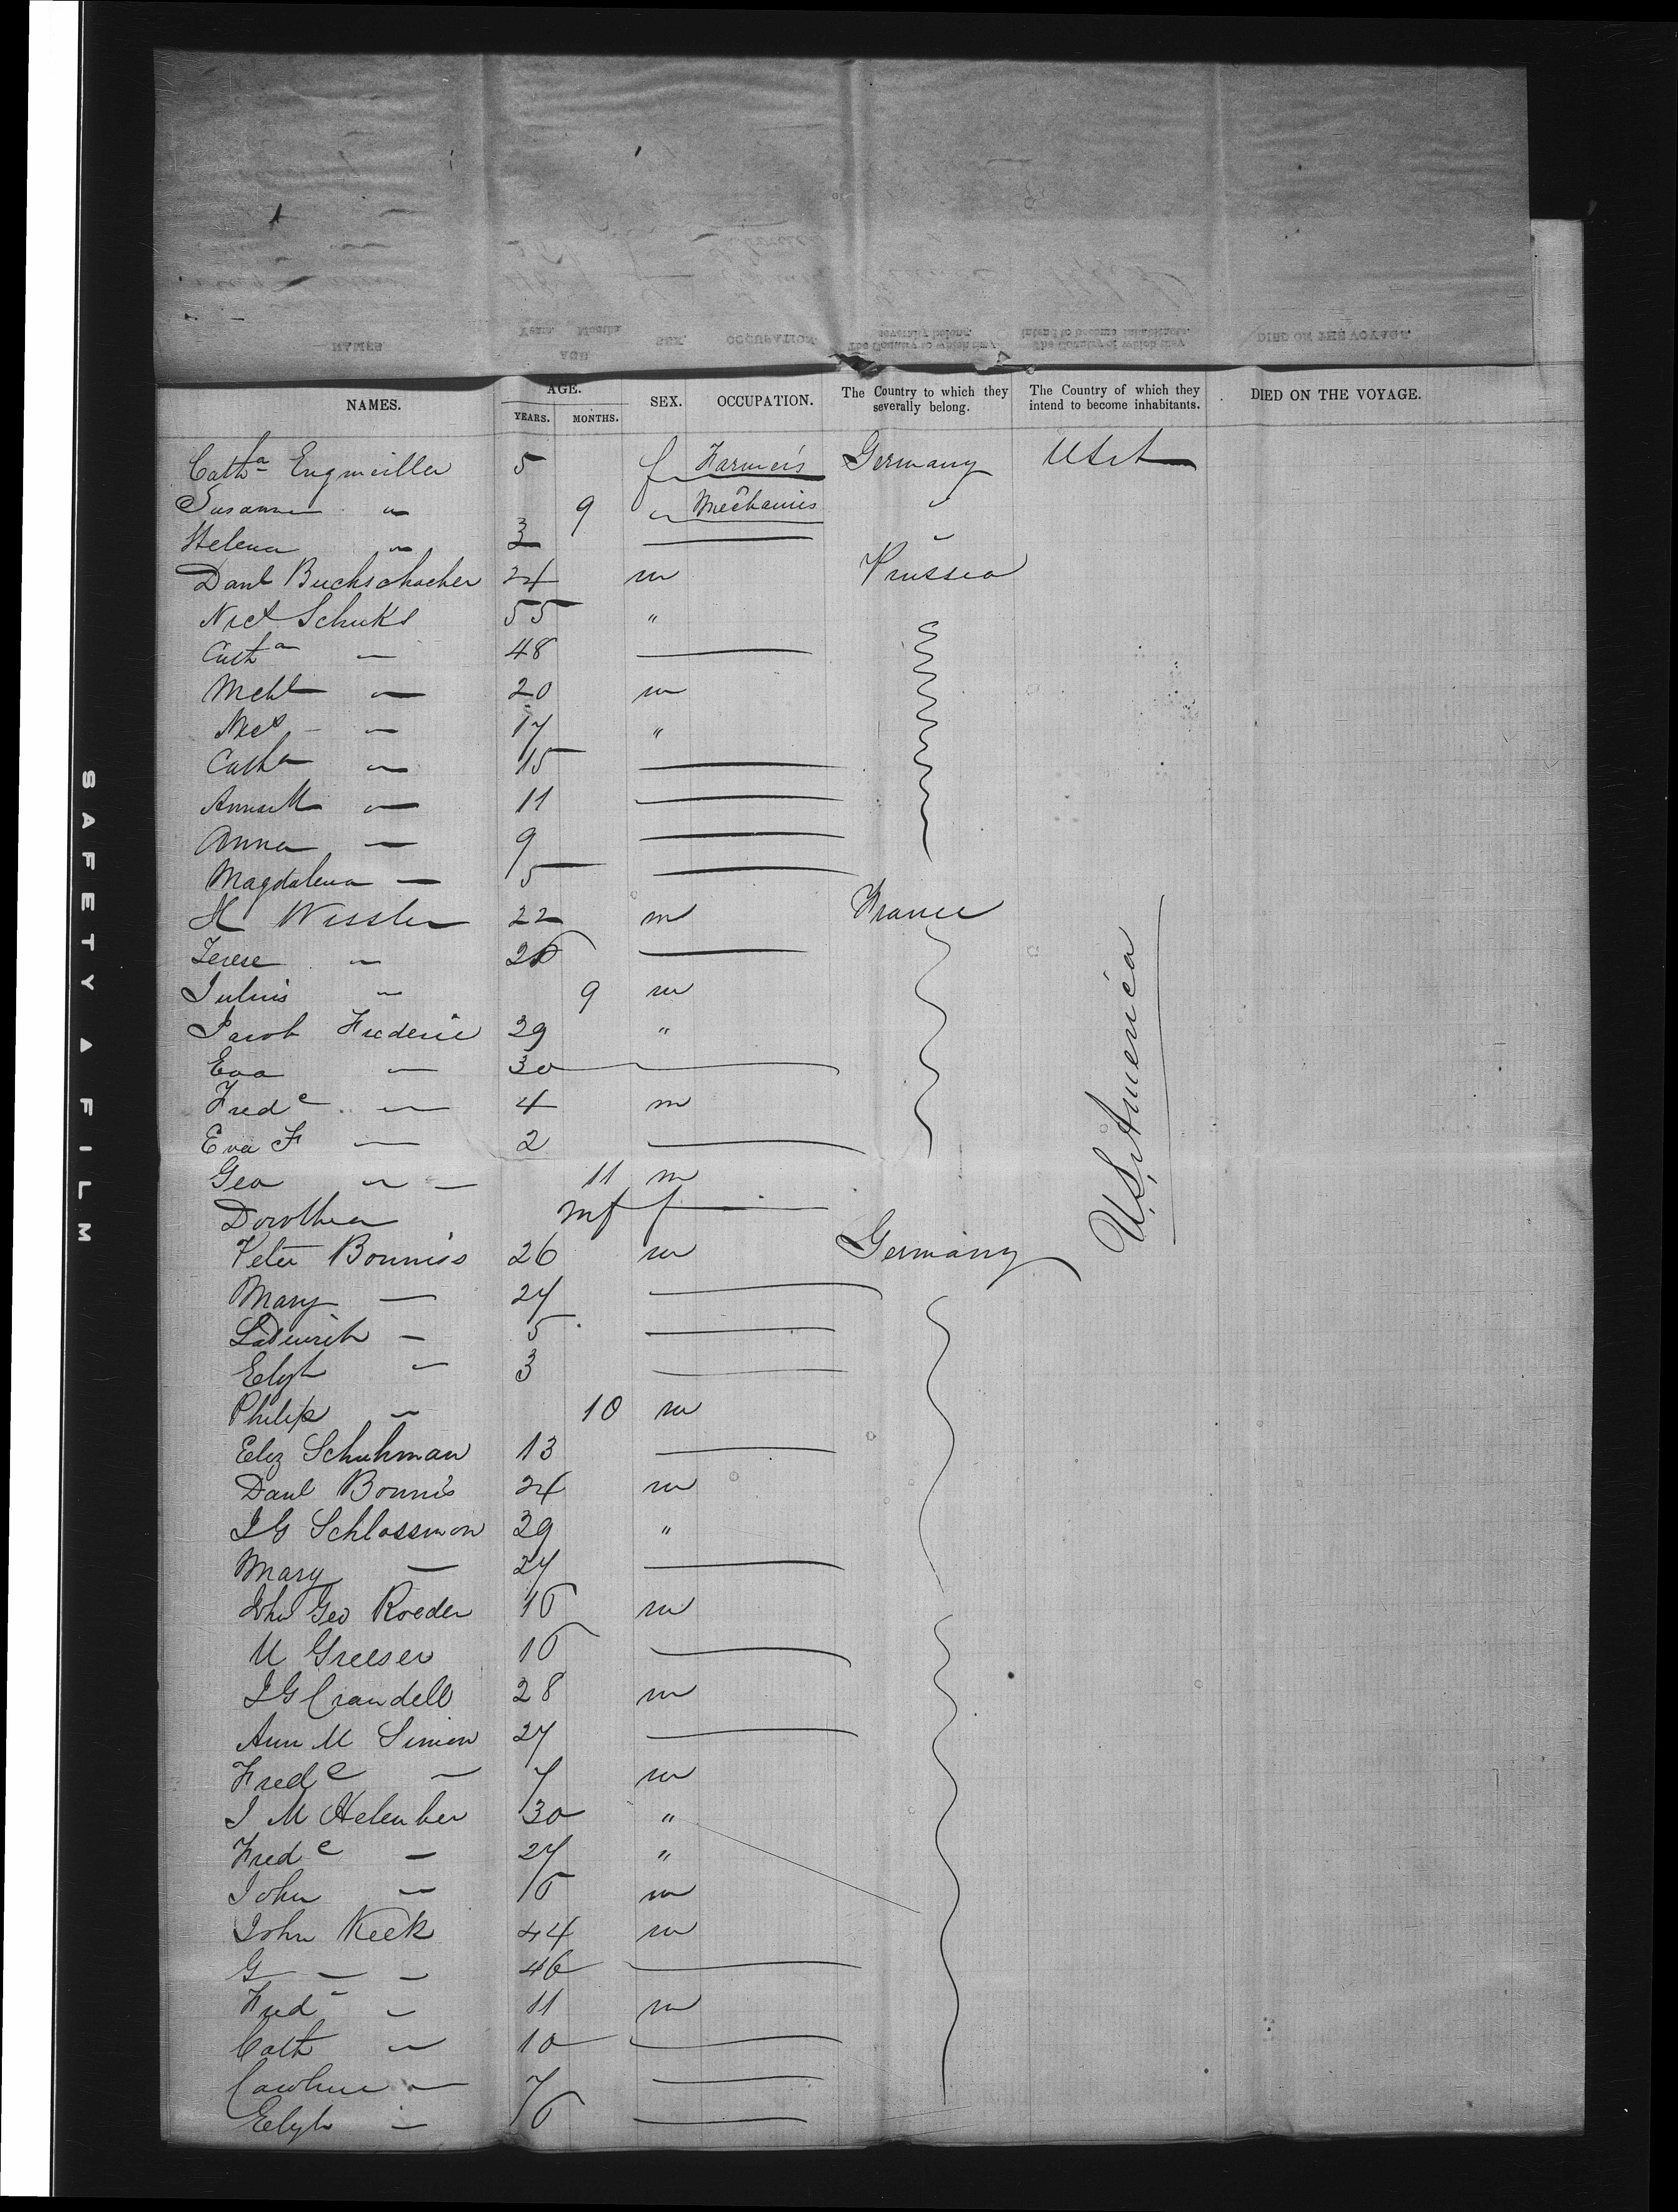 SAFETY A FILM
NAMES. AGE. SEX. OCCUPATION. The Country to which they severally belong. The Country of which they intend to become inhabitants. DIED ON THE VOYAGE.
YEARS. MONTHS.
Cath a Engmiller 5 f Farmers Germany
Susanna " 9 " Mechanics "
Helena " 3 — "
Danl Buchschacher 24 m Prussia
Nict Schuks 55 "
Cath a — 48 —
Mchl — 20 m
Nict — 17 "
Cath a — 15 —
Anna M — 11 —
Anna — 9 —
Magdalena — 5 —
H Wissler 22 m France
Terese " —
Julius " 9 m
Jacob Frederic 29 "
Eva — 30 —
Fred c — 4 m
Eva F — 2 —
Geo " — 11 m
Dorothea inf f —
Peter Bonniss 26 m Germany
Mary — 27 —
— 5 —
Elizh " 3 —
Philip — 10 m
Eliz Schuhman 13 —
Danl Bonnis 24 m
J G Schlossmon 29 "
Mary — 27 —
John Geo Roeder m
M Greeser —
J G Crandell 28 m
Ann M Simon 27 —
Fred c — 7 m
J M 30 "
Fred c — 27 "
John — m
John Keck 44 m
G — — 46 —
Fred c " 11 m
Cath " 10 —
Caroline — 7 —
Elizh — —
U.S. America